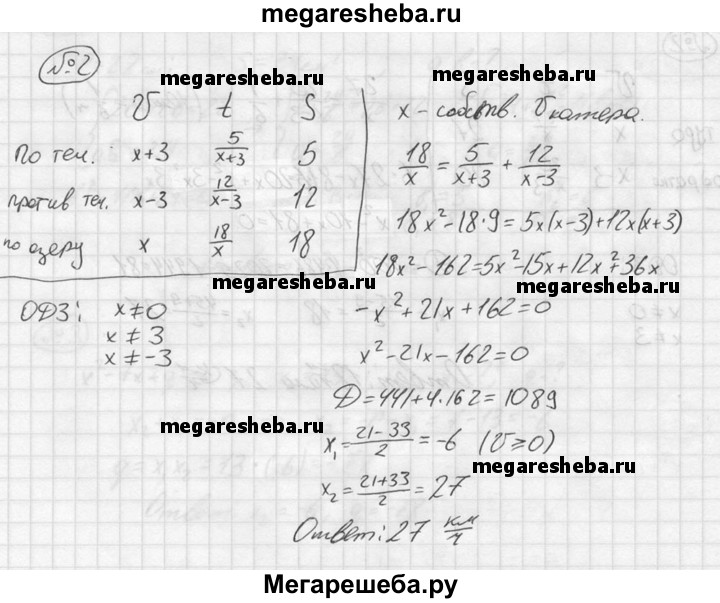 megaresheba.ru
№2
megaresheba.ru
megaresheba.ru
V t S
x - собств. V катера.
По теч. x+3 5/(x+3) 5
против теч. x-3 12/(x-3) 12
по озеру x 18/x 18
18/x = 5/(x+3) + 12/(x-3)
18x²-18·9=5x(x-3)+12x(x+3)
18x²-162=5x²-15x+12x²+36x
megaresheba.ru
megaresheba.ru
ОДЗ: x≠0
x≠3
x≠-3
-x²+21x+162=0
x²-21x-162=0
D=441+4·162=1089
megaresheba.ru
x₁=(21-33)/2=-6 (V⩾0)
megaresheba.ru
x₂=(21+33)/2=27
Ответ: 27 км/ч
Мегарешеба.ру